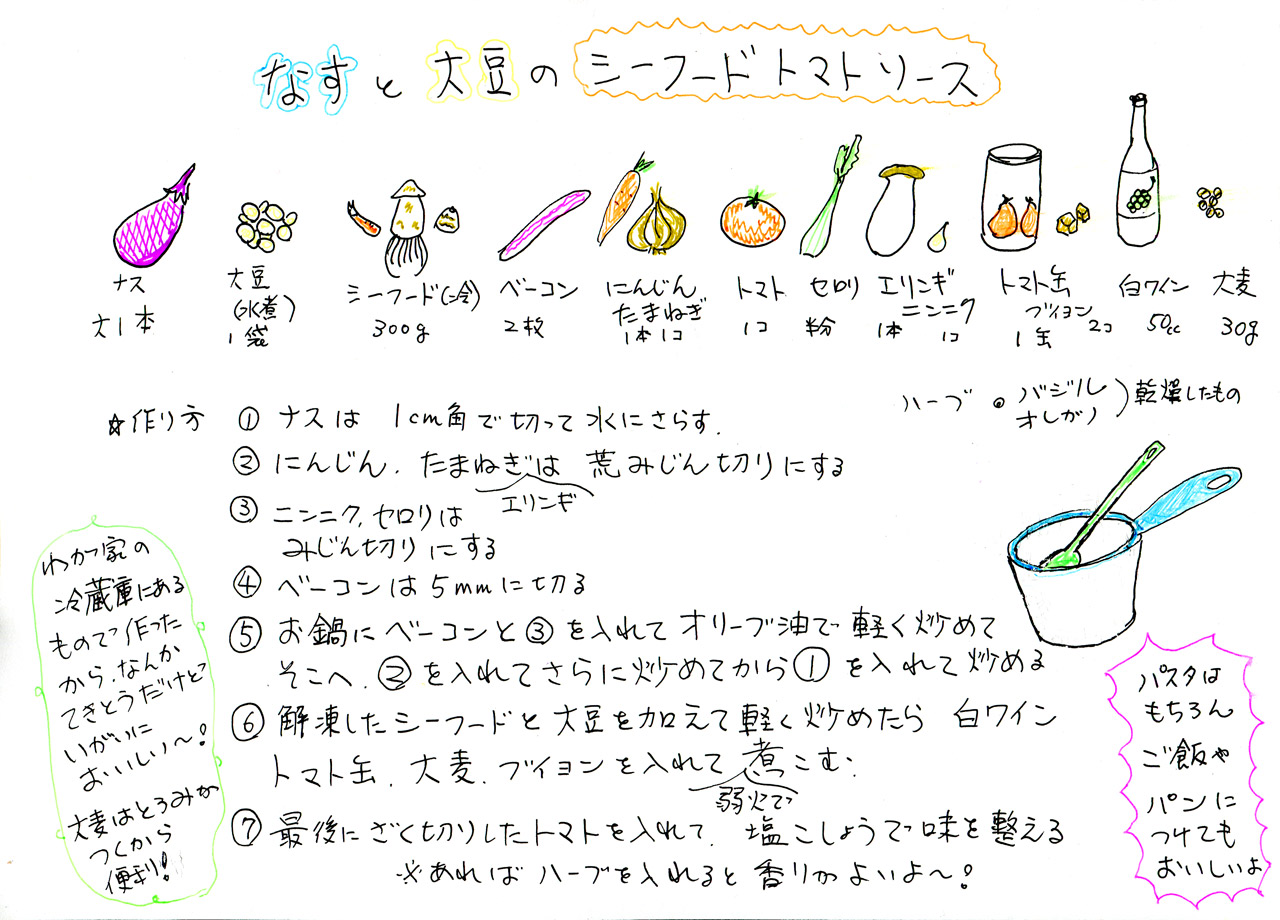 なすと大豆のシーフードトマトソース
ナス
大1本
大豆
(水煮)
1袋
シーフード(冷)
300g
ベーコン
2枚
にんじん
たまねぎ
1本 1コ
トマト
1コ
セロリ
半分
エリンギ
ニンニク
1本 1コ
トマト缶
ブイヨン
1缶 2コ
白ワイン
50cc
大麦
30g
ハーブ ・ バジル
オレガノ
)乾燥したもの
☆作り方 ① ナスは 1cm角で切って水にさらす.
② にんじん. たまねぎは 荒みじん切りにする
エリンギ
③ ニンニク, セロリは
みじん切りにする
④ ベーコンは5mmに切る
⑤ お鍋にベーコンと③を入れてオリーブ油で軽く炒めて
そこへ.②を入れてさらに炒めてから①を入れて炒める
⑥ 解凍したシーフードと大豆を加えて軽く炒めたら 白ワイン
トマト缶. 大麦. ブイヨンを入れて煮こむ.
弱火で
⑦ 最後にざく切りしたトマトを入れて. 塩こしょうで味を整える
※あればハーブを入れると香りがよいよ〜!
わが家の
冷蔵庫にある
もので作った
から.なんか
てきとうだけど
いがいに
おいしい〜!
大麦はとろみが
つくから
便利!
パスタは
もちろん
ご飯や
パンに
つけても
おいしいよ